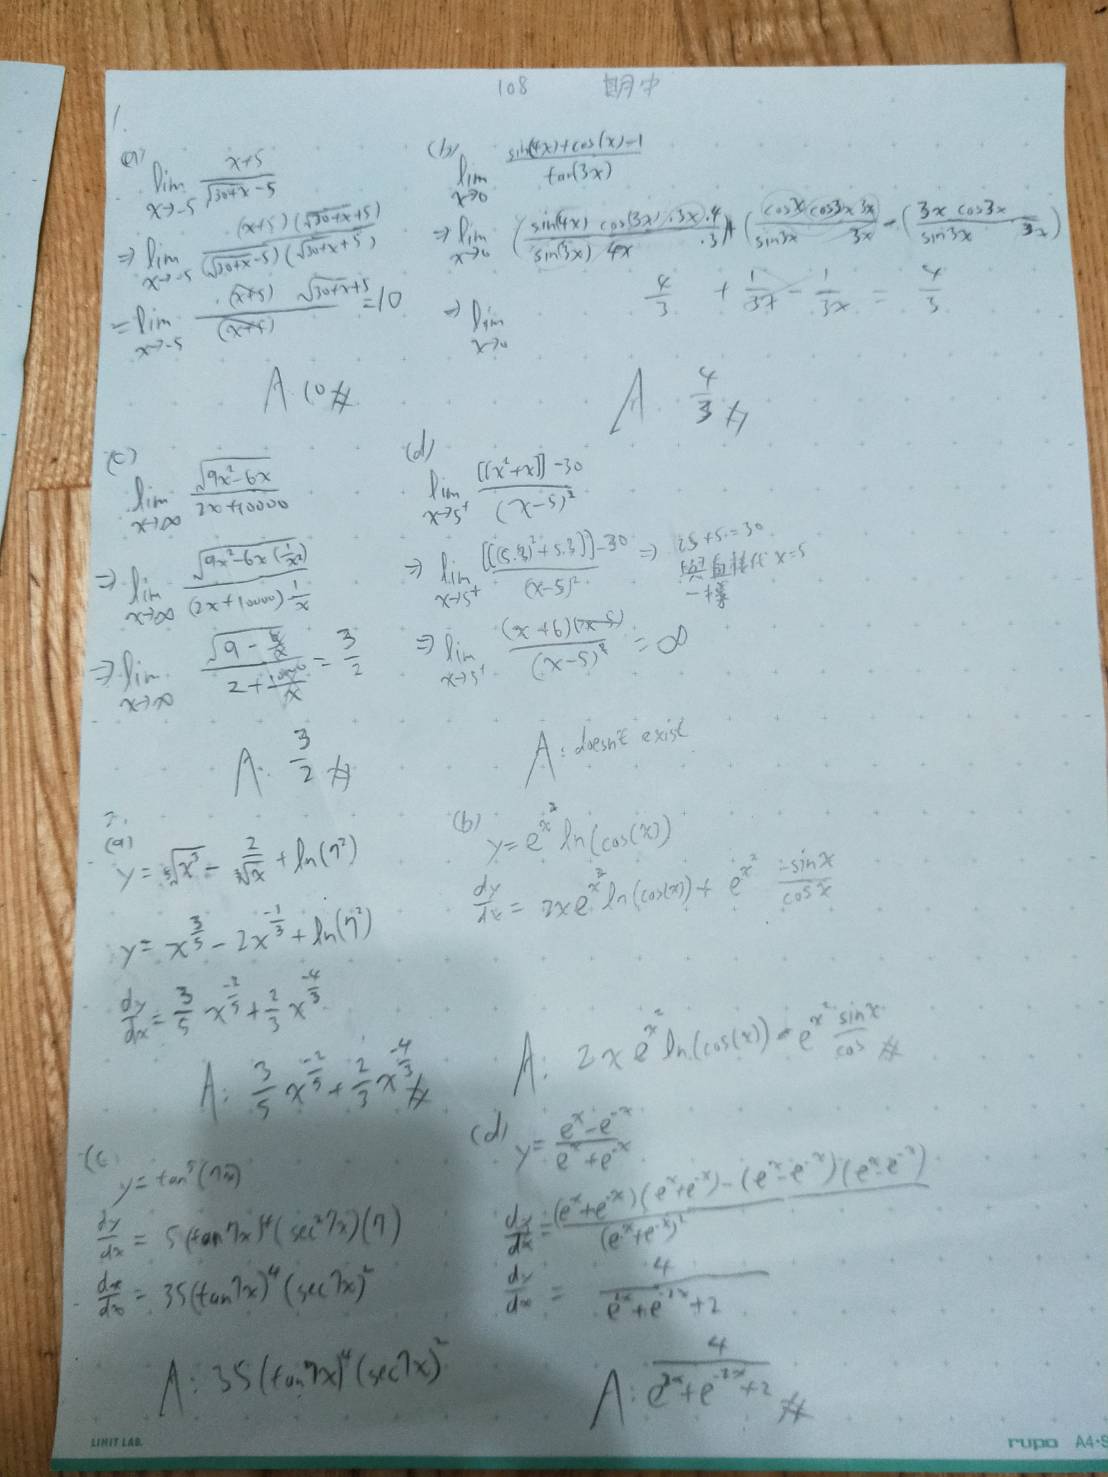 108 期中
1.
(a)
lim x→-5 (x+5)/(√(30+x)-5)
⇒ lim x→-5 (x+5)(√(30+x)+5)/((√(30+x)-5)(√(30+x)+5))
= lim x→-5 (x+5) √(30+x)+5/(x+5) = 10
A: 10 #
(b)
lim x→0 (sin(4x)+cos(x)-1)/tan(3x)
⇒ lim x→0 (sin(4x) cos(3x)·3x·4/sin(3x) 4x ·3) + (cosx cos3x 3x/sin3x 3x) - (3x cos3x/sin3x 3x)
4/3 + 1/3x - 1/3x = 4/3
⇒ lim x→0
A 4/3 #
(c)
lim x→∞ √(9x²-6x)/(2x+10000)
⇒ lim x→∞ √(9x²-6x(1/x²))/((2x+10000)·1/x)
⇒ lim x→∞ √(9-6/x)/(2+10000/x) = 3/2
A: 3/2 #
(d)
lim x→5⁺ ([[x²+x]]-30)/(x-5)²
⇒ lim x→5⁺ ([[(5.3)²+5.3]]-30)/(x-5)² ⇒ 25+5=30
與直接代 x=5
一樣
⇒ lim x→5⁺ (x+6)(x-5)/(x-5)² = ∞
A: doesn't exist
2.
(a)
y = ⁵√x³ - 2/³√x + ln(7²)
y = x^(3/5) - 2x^(-1/3) + ln(7²)
dy/dx = 3/5 x^(-2/5) + 2/3 x^(-4/3)
A: 3/5 x^(-2/5) + 2/3 x^(-4/3) #
(b)
y = e^(x²) ln(cos(x))
dy/dx = 2xe^(x²) ln(cos(x)) + e^(x²) -sinx/cosx
A: 2x e^(x²) ln(cos(x)) - e^(x²) sinx/cos #
(c
y = tan⁵(7x)
dy/dx = 5(tan7x)⁴(sec²7x)(7)
dx/dx = 35(tan7x)⁴(sec7x)²
A: 35(tan7x)⁴(sec7x)²
(d)
y = (e^x-e^-x)/(e^x+e^-x)
dy/dx = ((e^x+e^-x)(e^x+e^-x)-(e^x-e^-x)(e^x-e^-x))/(e^x+e^-x)²
dy/dx = 4/(e^2x+e^-2x+2)
A: 4/(e^2x+e^-2x+2) #
LIMIT LAB.
rupo A4·S